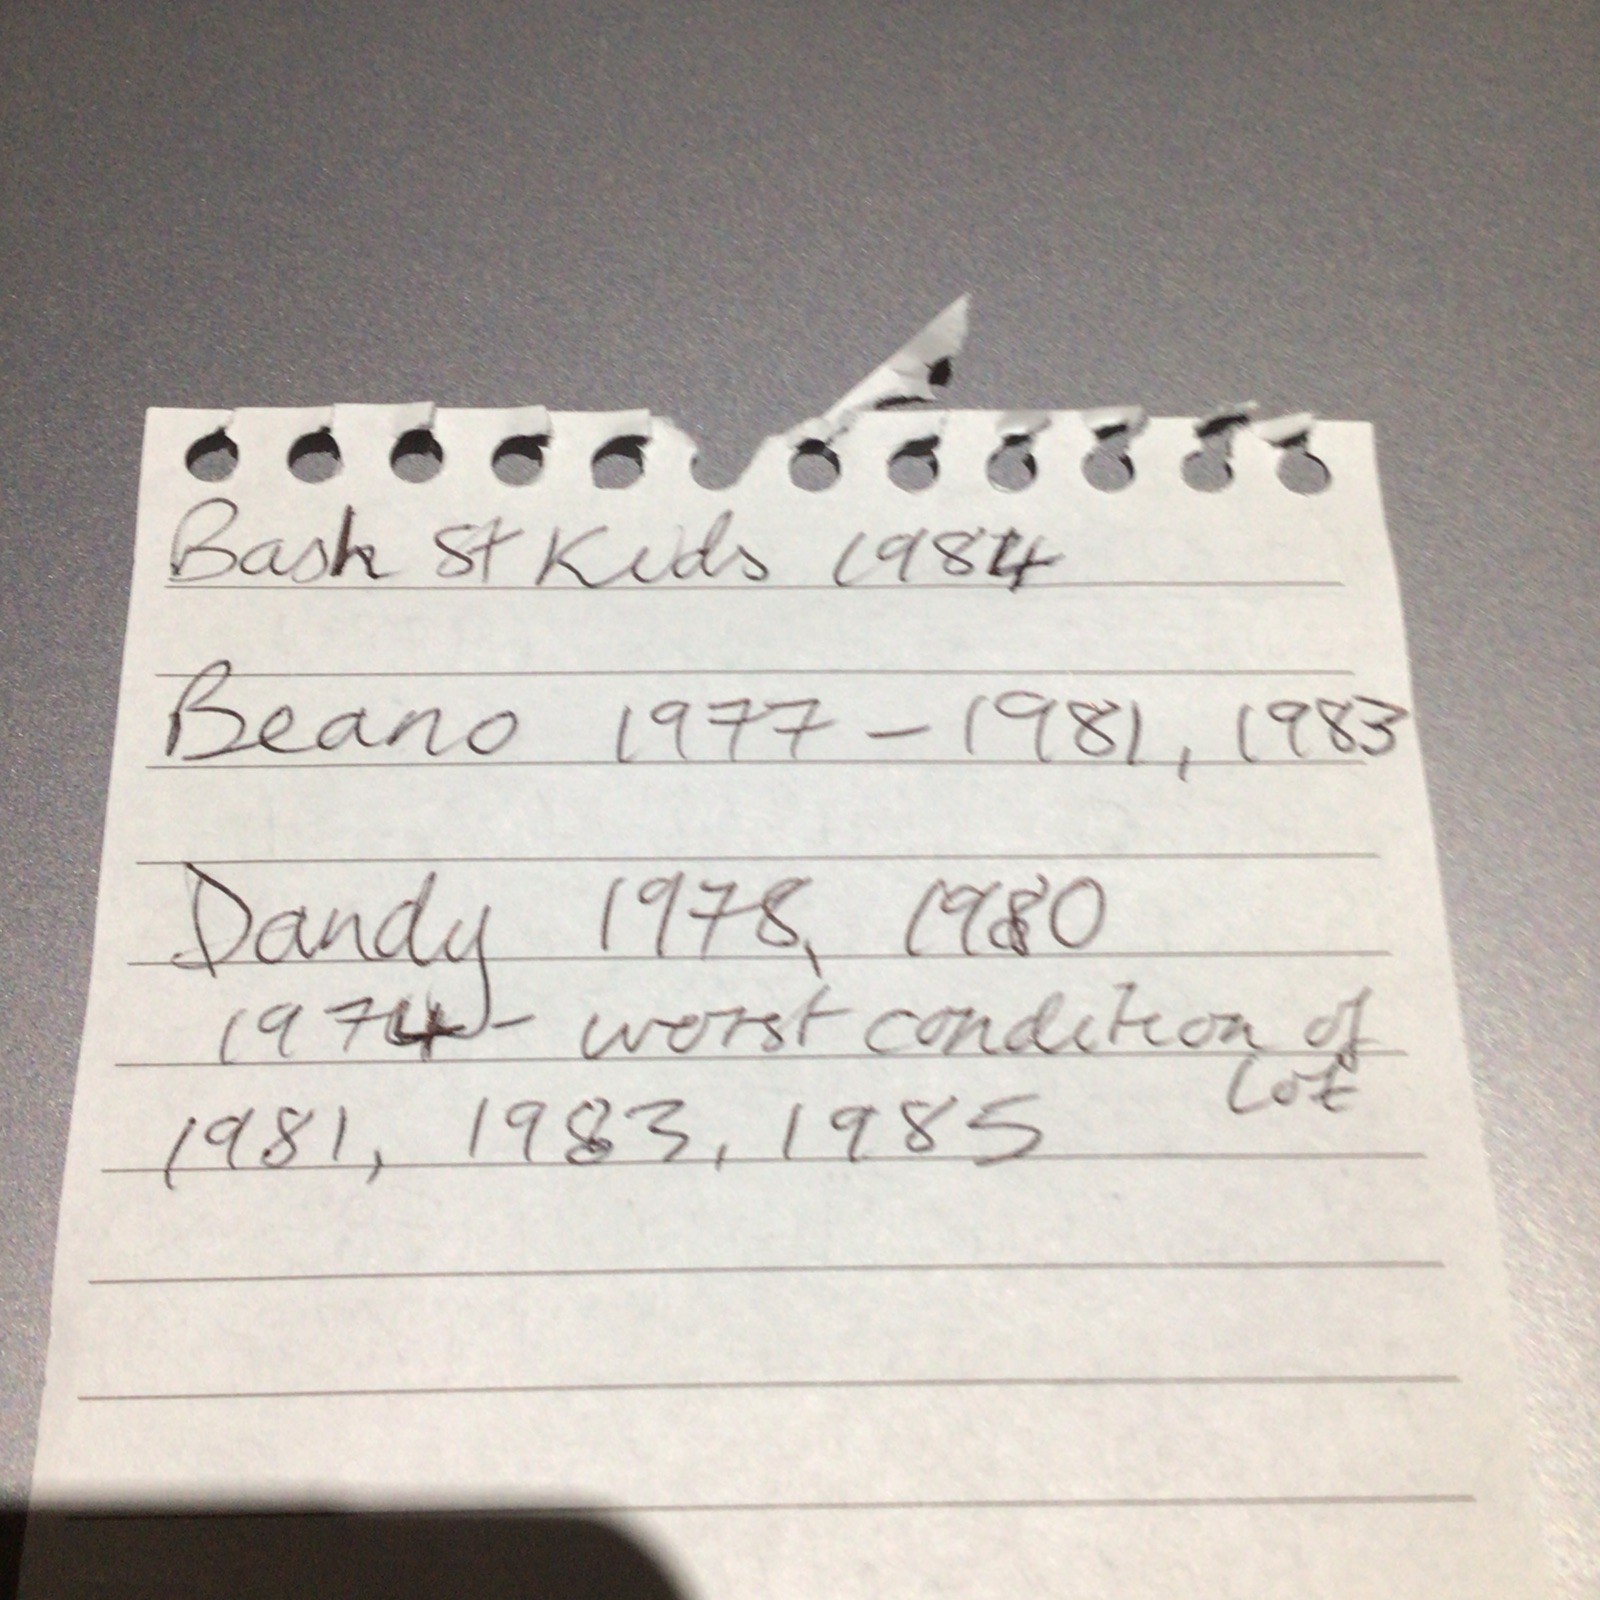 Bash St Kids 1984
Beano 1977 - 1981, 1983
Dandy 1978, 1980
1974 - worst condition of
lot
1981, 1983, 1985